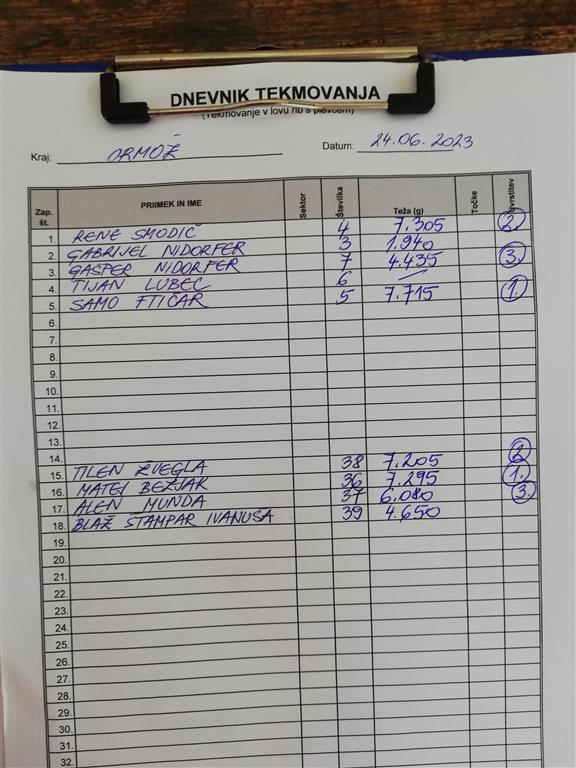 DNEVNIK TEKMOVANJA
(Tekmovanje v lovu rib s plovcem)
Kraj: ORMOŽ Datum: 24.06.2023
Zap. št. PRIIMEK IN IME Sektor Številka Teža (g) Točke Uvrstitev
1. RENE SMODIČ 4 7.305 2.
2. GABRIJEL NIDORFER 3 1.940
3. GAŠPER NIDORFER 7 4.435 3.
4. TIJAN LUBEC 6 —
5. SAMO FTIČAR 5 7.715 1.
6.
7.
8.
9.
10.
11.
12.
13.
14.
15. TILEN ŽVEGLA 38 7.205 2
16. MATEJ BEŽJAK 36 7.295 1.
17. ALEN MUNDA 37 6.080 3.
18. BLAŽ ŠTAMPAR IVANUŠA 39 4.650
19.
20.
21.
22.
23.
24.
25.
26.
27.
28.
29.
30.
31.
32.